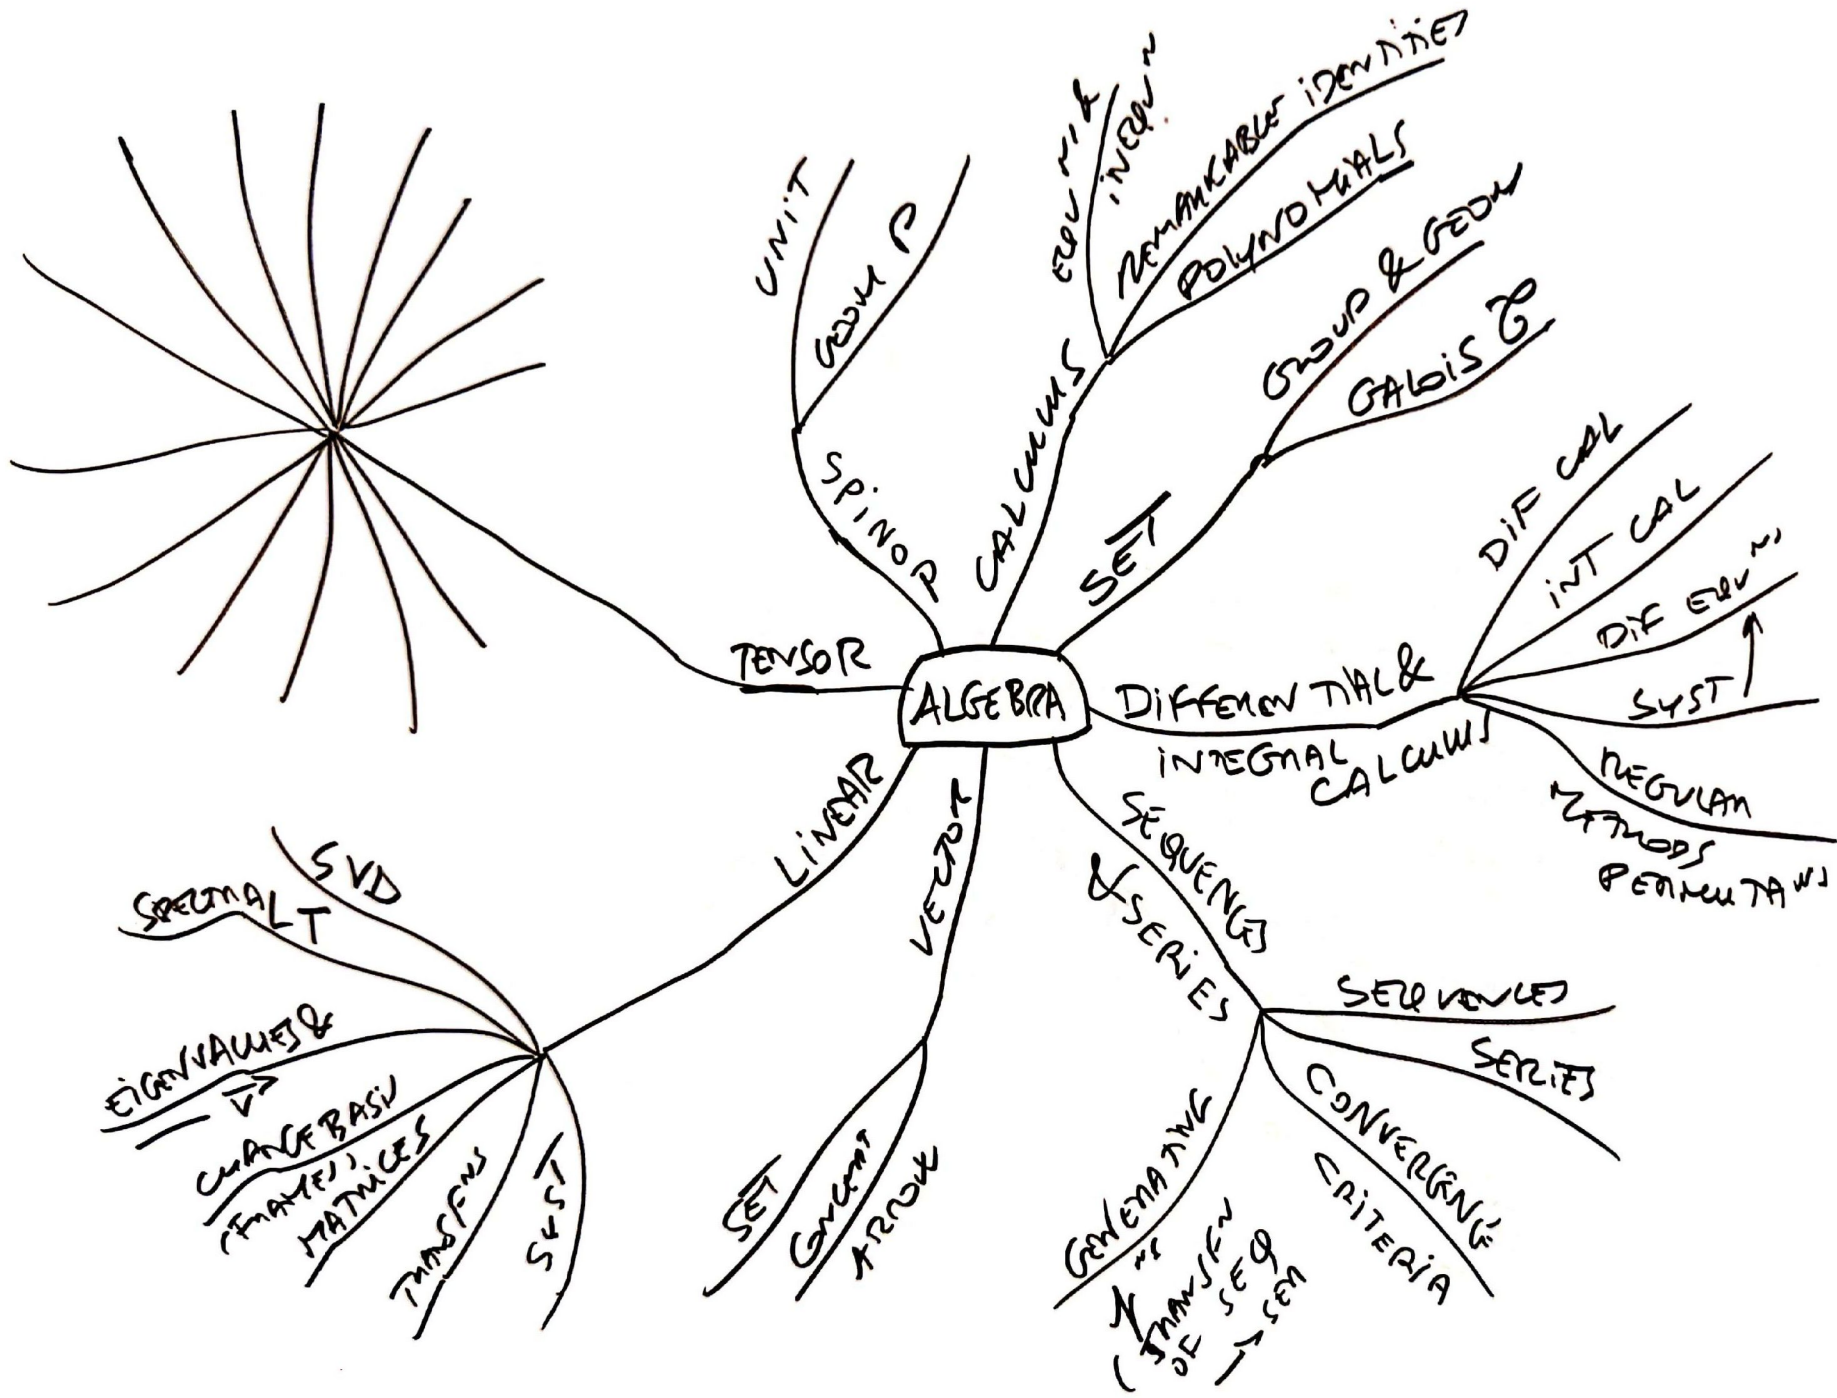 ALGEBRA
TENSOR
SPINOR
UNIT
GEOM P
CALCULUS
EQUNS &
INEQUN
REMARKABLE IDENTITIES
POLYNOMIALS
SET
GROUP & GEOM
GALOIS
DIFFERENTIAL &
INTEGRAL
CALCULUS
DIF CAL
INT CAL
DIF EQUNS
SYST
REGULAR
METHODS
PERMUTANS
SEQUENCES
& SERIES
SEQUENCES
SERIES
CONVERGENCE
CRITERIA
GENERATING
NS
(TRANSFN
OF SEQ
→ SER
VECTOR
SET
CONCEPT
ARROW
LINEAR
SVD
SPECTRAL T
EIGENVALUES &
V→
CHANGE BASIS
(FRAMES)
MATRICES
TRANSFNS
SYST